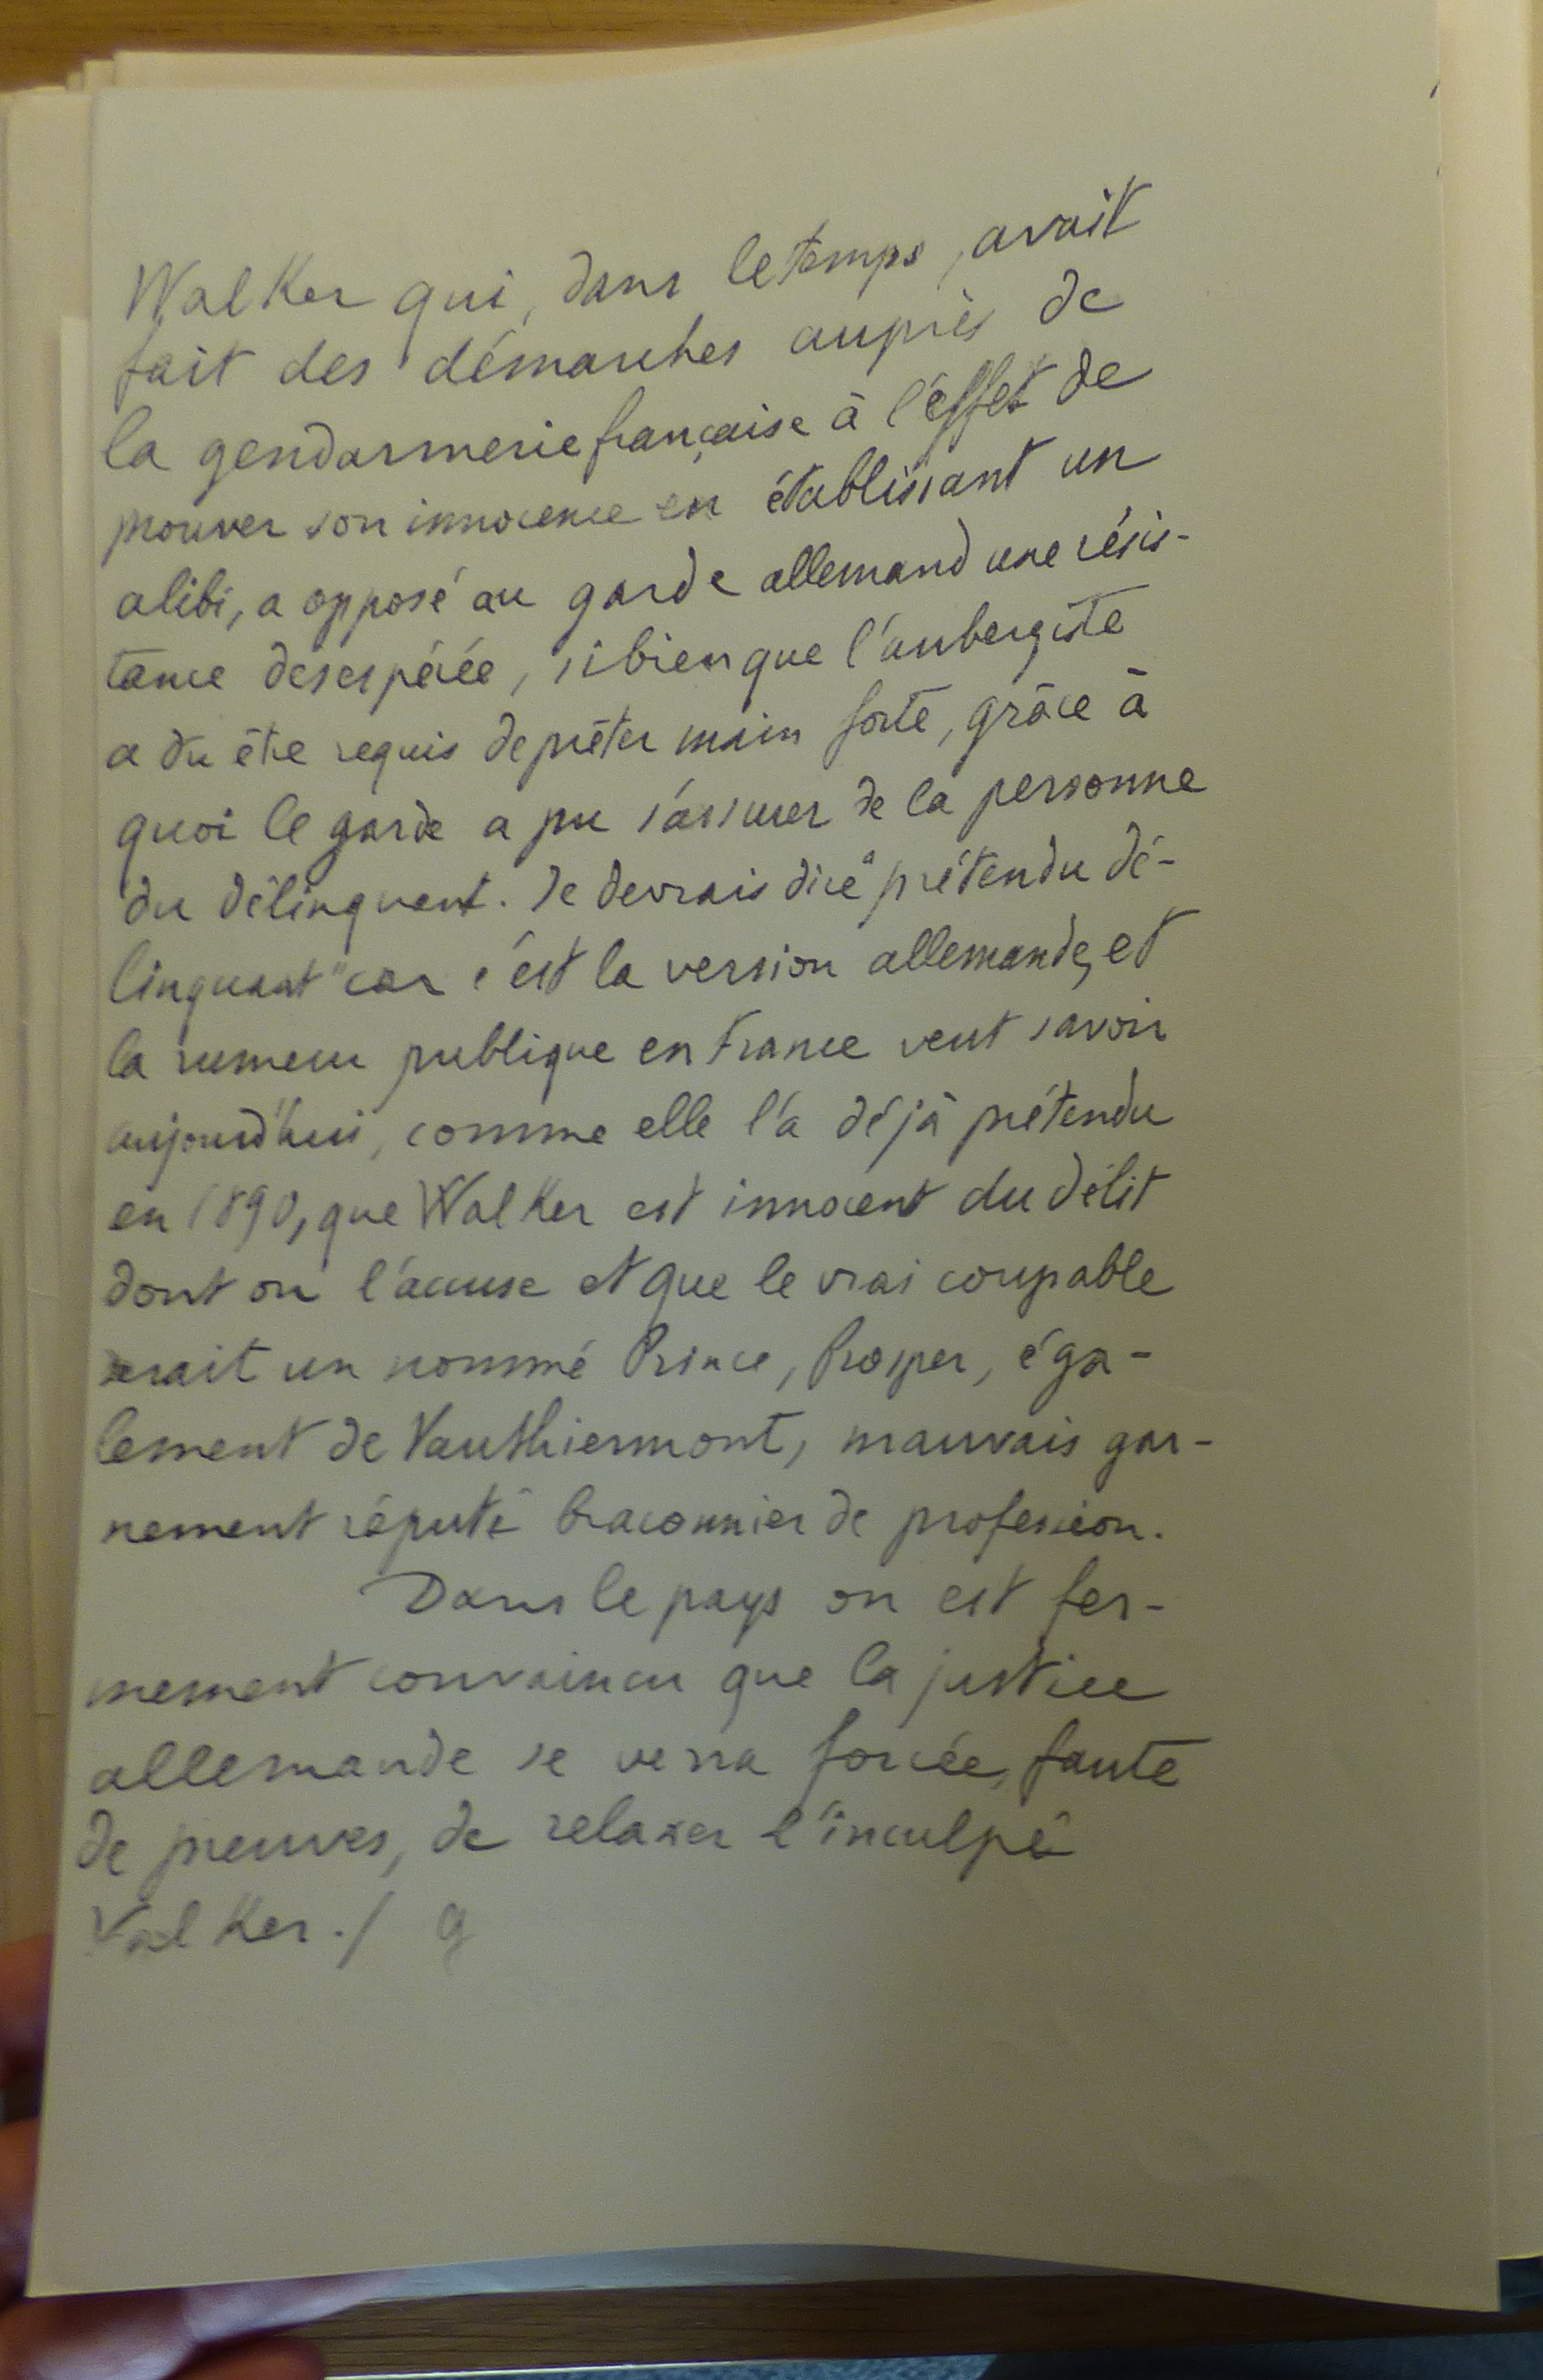 Walker qui, dans le temps, avait
fait des démarches auprès de
la gendarmerie française à l'effet de
prouver son innocence en établissant un
alibi, a opposé au garde allemand une résis-
tance desespérée, si bien que l'aubergiste
a du être requis de prêter main forte, grâce à
quoi le garde a pu s'assurer de la personne
du délinquent. Je devrais dire "prétendu dé-
linquant" car c'est la version allemande, et
la rumeur publique en France veut savoir
aujourd'hui, comme elle l'a déjà prétendu
en 1890, que Walker est innocent du délit
dont on l'accuse et que le vrai coupable
serait un nommé Prince, Prosper, éga-
lement de Vauthiermont, mauvais gar-
nement réputé braconnier de profession.
Dans le pays on est fer-
mement convaincu que la justice
allemande se verra forcée, faute
de preuves, de relaxer l'inculpé
Walker./ g